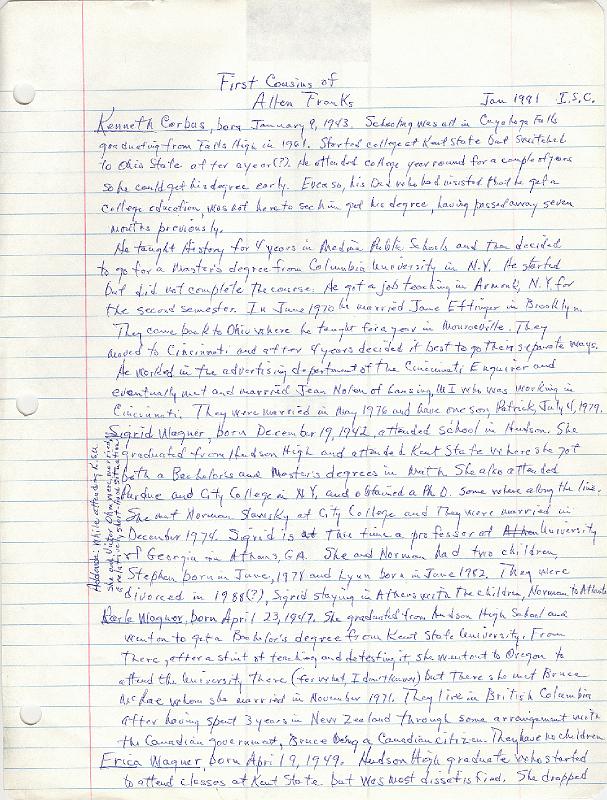 First Cousins of
Allen Franks
Jan 1991 I.S.C.
Kenneth Corbus, born January 9, 1943. Schooling was all in Cuyahoga Falls
graduating from Falls High in 1961. Started college at Kent State but switched
to Ohio State after a year(?). He attended college year round for a couple of years
so he could get his degree early. Even so, his Dad who had insisted that he get a
college education, was not here to see him get his degree, having passed away seven
months previously.
He taught History for 4 years in Medina Public Schools and then decided
to go for a Master's degree from Columbia University in N.Y. He started
but did not complete the course. He got a job teaching in Armonk, N.Y. for
the second semester. In June 1970 he married Jane Ettinger in Brooklyn.
They came back to Ohio where he taught for a year in Monroeville. They
moved to Cincinnati and after 4 years decided it best to go their separate ways.
He worked in the advertising department of the Cincinnati Enquirer and
eventually met and married Jean Nolan of Lansing, MI who was working in
Cincinnati. They were married in May 1976 and have one son Patrick, July 4, 1979.
Sigrid Wagner, born December 19, 1942, attended school in Hudson. She
graduated from Hudson High and attended Kent State where she got
both a Bachelor's and Master's degrees in Math. She also attended
Purdue and City College in N.Y. and obtained a Ph.D. some where along the line.
She met Norman Stansky at City College and they were married in
December 1974. Sigrid is at this time a professor at University
of Georgia in Athens, GA. She and Norman had two children,
Stephen born in June, 1978 and Lynn born in June 1982. They were
divorced in 1988(?), Sigrid staying in Athens with the children, Norman to Atlanta
Addenda: While attending K.S.U.
she and Victor Ohm were married,
a relatively short-lived situation.
Karla Wagner, born April 23, 1947. She graduated from Hudson High School and
went on to get a Bachelor's degree from Kent State University. From
there, after a stint of teaching and detesting it, she went out to Oregon to
attend the University there (for what I don't know) but there she met Bruce
McRae whom she married in November 1971. They live in British Columbia
after having spent 3 years in New Zealand through some arrangement with
the Canadian government, Bruce being a Canadian citizen. They have no children
Erica Wagner, born April 19, 1949. Hudson High graduate who started
to attend classes at Kent State but was most dissatisfied. She dropped